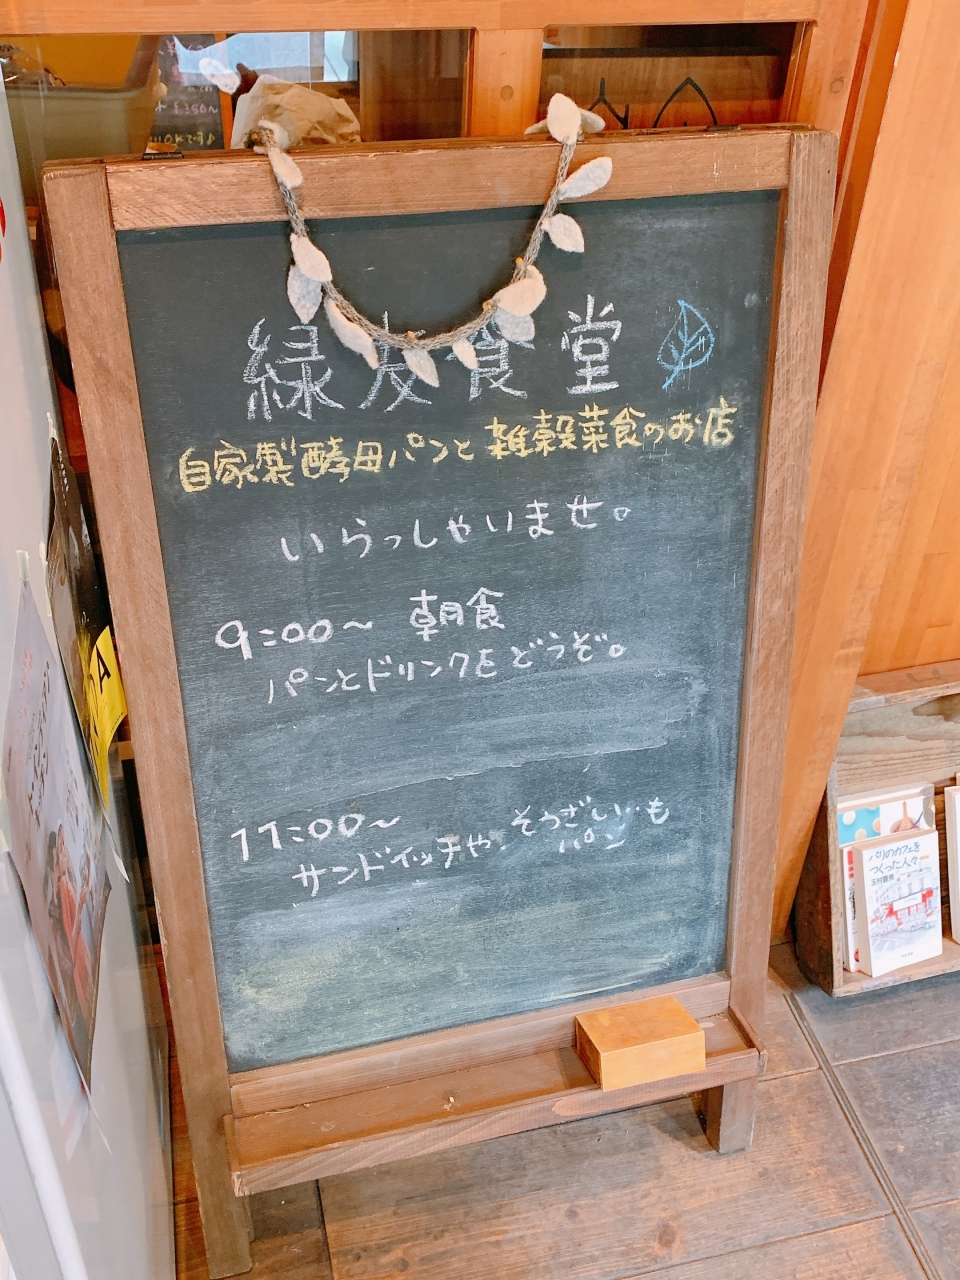 ¥350〜
OKです♪
緑友食堂
自家製酵母パンと雑穀菜食のお店
いらっしゃいませ。
9:00〜 朝食
パンとドリンクをどうぞ。
11:00〜
サンドイッチや、そうざい
パン
も
A
パリのカフェを
つくった人々
玉村豊男